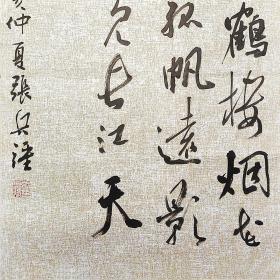 鶴樓烟花
孤帆遠影
見長江天
仲夏張